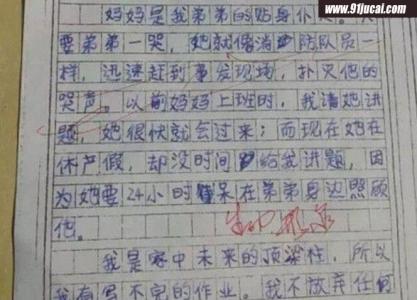 www.91jucai.com
妈妈是我弟弟的贴身仆
要弟弟一哭，她就像消防队员一
样，迅速赶到事发现场，扑灭他的
哭声。以前妈妈上班时，我请她讲
题，她很快就会过来；而现在她在
休产假，却没时间给我讲题，因
为她要24小时呆在弟弟身边照顾
他。
我是家中未来的顶梁柱，所以
我有写不完的作业。我不放弃任何